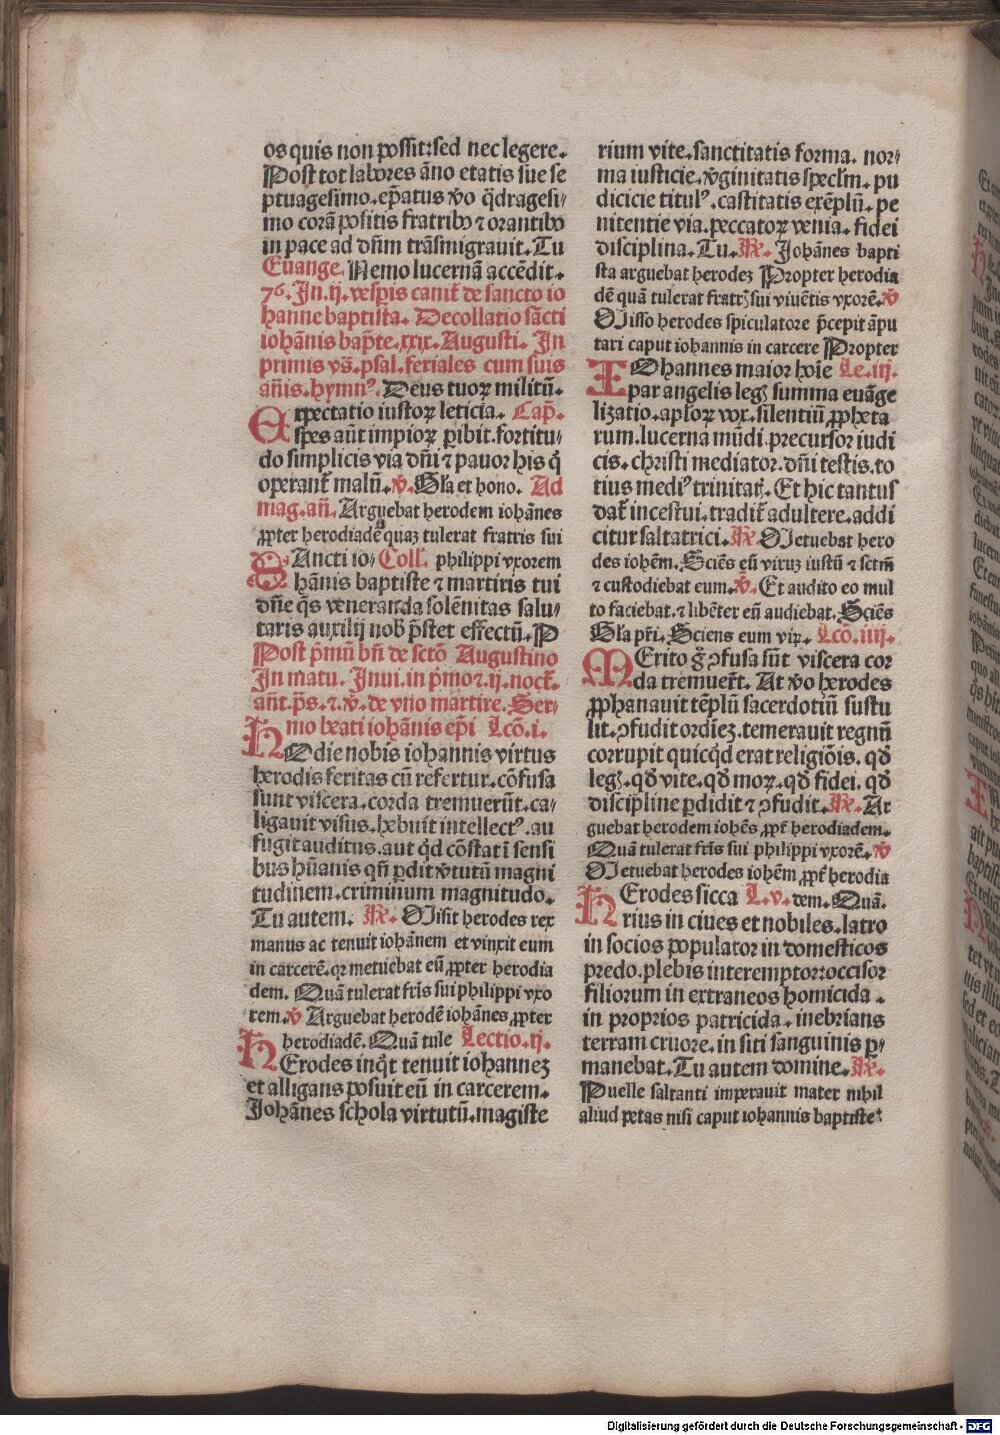 os quis non possit:sed nec legere.
Post tot labores āno etatis sue se
ptuagesimo.ep̄atus v̄o q̄dragesi/
mo corā positis fratribꝰ ⁊ orantibꝰ
in pace ad dn̄m trāsmigrauit.Tu
Euange. Nemo lucernā accēdit.
76.In.ij.vesp̄is canit᷑ de sancto io
hanne baptista. Decollatio sācti
iohānis bap̄te.xxix.Augusti. In
primis vs̄.psal.feriales cum suis
an̄is.hymnꝰ. Deus tuoꝝ militū.
Expectatio iustoꝝ leticia. Cap̄.
spes aūt impioꝝ ꝑibit.fortitu/
do simplicis via dn̄i ⁊ pauor his q̄
operant᷑ malū. v̄. Gl̄a et hono. Ad
mag.an̄. Arguebat herodem iohānes
ꝓpter herodiadē quaꝫ tulerat fratris sui
SAncti io/ Coll. philippi vxorem
hānis baptiste ⁊ martiris tui
dn̄e q̄s veneranda solēnitas salu/
taris auxilij nob̄ p̄stet effectū. P
Post p̄mū bn̄ de sctō Augustino
In matu. Inui.in p̄mo ⁊.ij.noct᷑.
an̄t.p̄s.⁊.v̄.de vno martire. Ser/
mo beati iohānis ep̄i Lcō.i.
HOdie nobis iohannis virtus
herodis feritas cū refertur.cōfusa
sunt viscera.corda tremuerūt.ca/
ligauit visus.hebuit intellectꝰ.au
fugit auditus.aut q̄d cōstat ī sensi
bus hūanis qn̄ ꝑdit v̄tutū magni
tudinem.criminum magnitudo.
Tu autem. R̄. Misit herodes rex
manus ac tenuit iohānem et vinxit eum
in carcerē.qꝛ metuebat eū ꝓpter herodia
dem. Quā tulerat fr̄is sui philippi vxo
rem. v̄ Arguebat herodē iohānes ꝓpter
herodiadē.Quā tule Lectio.ij.
HErodes inq̄t tenuit iohanneꝫ
et alligans posuit eū in carcerem.
Johānes schola virtutū.magiste
rium vite.sanctitatis forma. nor/
ma iusticie.v̄ginitatis specl̄m. pu
dicicie titulꝰ.castitatis exēplū. pe
nitentie via.peccatoꝝ venia. fidei
disciplina. Tu. R̄. Johānes bapti
sta arguebat herodeꝫ Propter herodia
dē quā tulerat fratr̄ sui viuētis vxorē. v̄
Misso herodes spiculatore p̄cepit āpu
tari caput iohannis in carcere Propter
IOhannes maior hoīe Le.iij.
par angelis leḡ summa euāge
lizatio.apl̄oꝝ vox.silentiū ꝓpheta
rum.lucerna mūdi.precursor iudi
cis.christi mediator.dn̄i testis.to
tius mediꝰ trinitat᷑. Et hic tantus
dat᷑ incestui.tradit᷑ adultere.addi
citur saltatrici. R̄. Metuebat hero
des iohēm. Sciēs eū viruꝫ iustū ⁊ sctm̄
⁊ custodiebat eum. v̄. Et audito eo mul
to faciebat.⁊ libēter eū audiebat. Sciēs
Gl̄a pr̄i. Sciens eum viꝝ. Lcō.iiij.
MErito g̊ ꝯfusa sūt viscera cor
da tremuer̄t. At v̄o herodes
ꝓphanauit tēplū sacerdotiū sustu
lit.ꝯfudit ordiēꝫ.temerauit regnū
corrupit quicq̄d erat religiōis. qd̄
leḡ.qd̄ vite.qd̄ moꝝ.qd̄ fidei. qd̄
discipline ꝑdidit ⁊ ꝯfudit. R̄. Ar
guebat herodem iohēs ꝓpt᷑ herodiadem.
Quā tulerat fr̄is sui philippi vxorē. v̄
Metuebat herodes iohēm ꝓpt᷑ herodia
HErodes sicca L.v. dem. Quā.
rius in ciues et nobiles.latro
in socios populator in domesticos
predo.plebis interemptor:occisor
filiorum in extraneos homicida .
in proprios patricida. inebrians
terram cruore.in siti sanguinis ꝑ/
manebat. Tu autem domine. R̄.
Puelle saltanti imperauit mater nihil
aliud petas nisi caput iohannis baptiste.
Digitalisierung gefördert durch die Deutsche Forschungsgemeinschaft - DFG